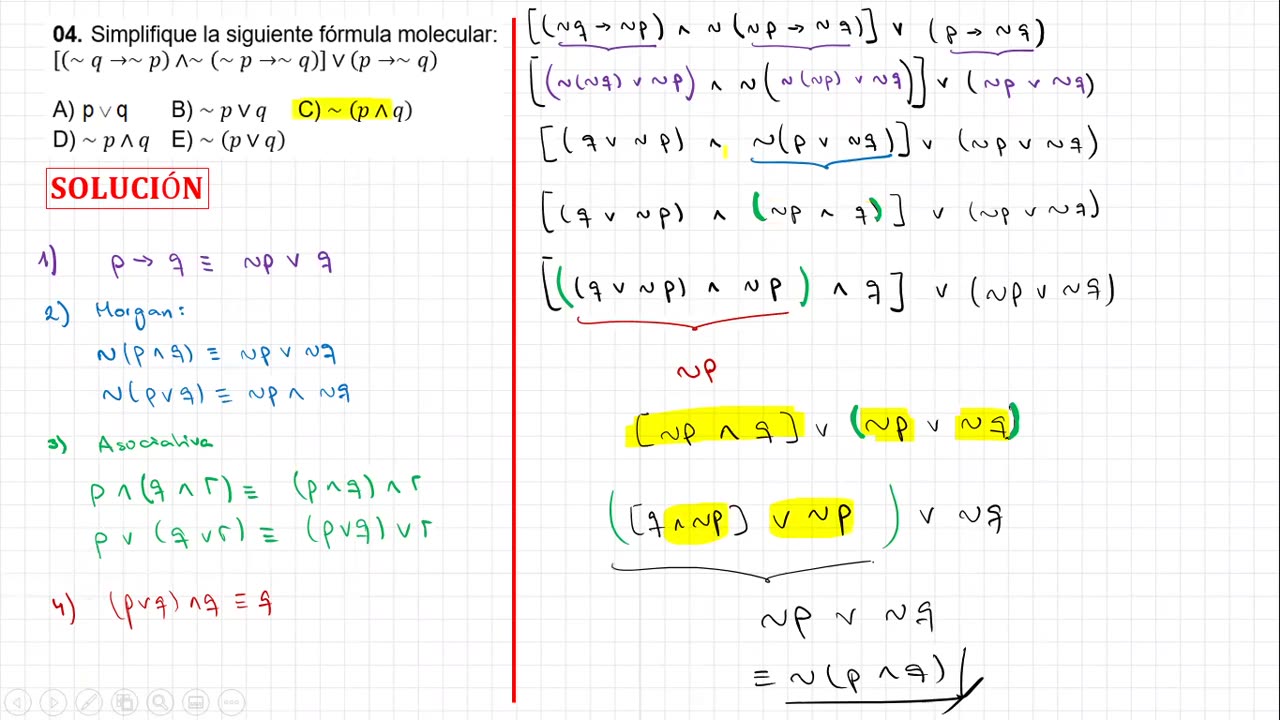 04. Simplifique la siguiente fórmula molecular:
[(∼ q →∼ p) ∧∼ (∼ p →∼ q)] ∨ (p →∼ q)
A) p ∨ q B) ∼ p ∨ q C) ∼ (p ∧ q)
D) ∼ p ∧ q E) ∼ (p ∨ q)
SOLUCIÓN
1) p → q ≡ ∼p ∨ q
2) Morgan:
∼(p ∧ q) ≡ ∼p ∨ ∼q
∼(p ∨ q) ≡ ∼p ∧ ∼q
3) Asociativa
p ∧ (q ∧ r) ≡ (p ∧ q) ∧ r
p ∨ (q ∨ r) ≡ (p ∨ q) ∨ r
4) (p ∨ q) ∧ q ≡ q
[(∼q → ∼p) ∧ ∼(∼p → ∼q)] ∨ (p → ∼q)
[(∼(∼q) ∨ ∼p) ∧ ∼(∼(∼p) ∨ ∼q)] ∨ (∼p ∨ ∼q)
[(q ∨ ∼p) ∧ ∼(p ∨ ∼q)] ∨ (∼p ∨ ∼q)
[(q ∨ ∼p) ∧ (∼p ∧ q)] ∨ (∼p ∨ ∼q)
[((q ∨ ∼p) ∧ ∼p) ∧ q] ∨ (∼p ∨ ∼q)
∼p
[∼p ∧ q] ∨ (∼p ∨ ∼q)
([q ∧ ∼p] ∨ ∼p) ∨ ∼q
∼p ∨ ∼q
≡ ∼(p ∧ q)